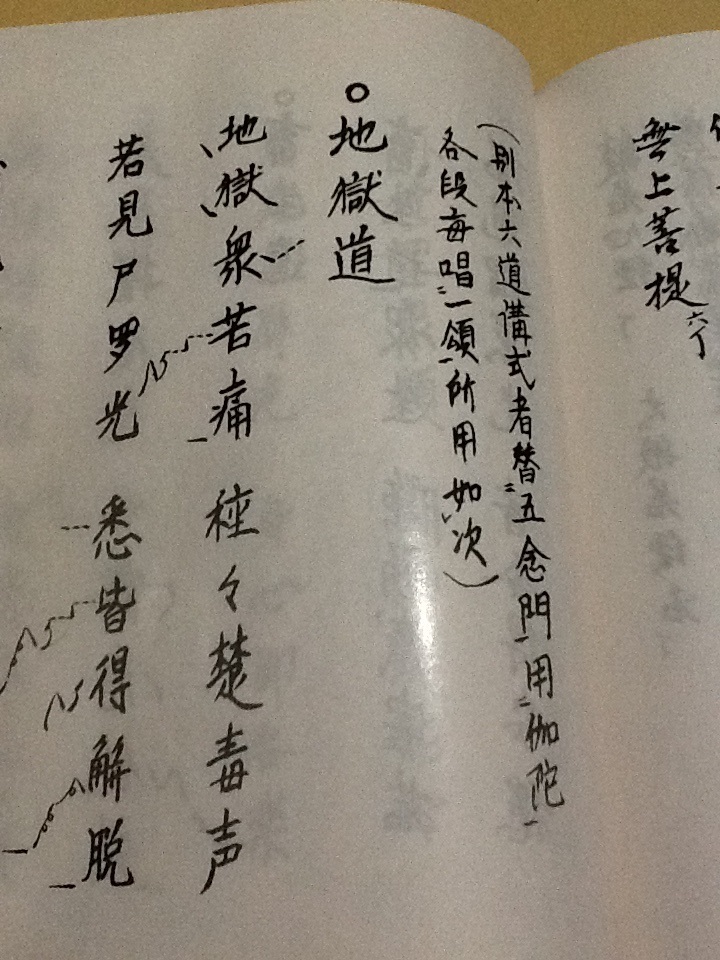 無上菩提六丁
(別本六道備式者替五念門用伽陀
各段毎唱一頌所用如次)
○地獄道
地獄衆苦痛 種々楚毒声
若見尸罗光 悉皆得解脱